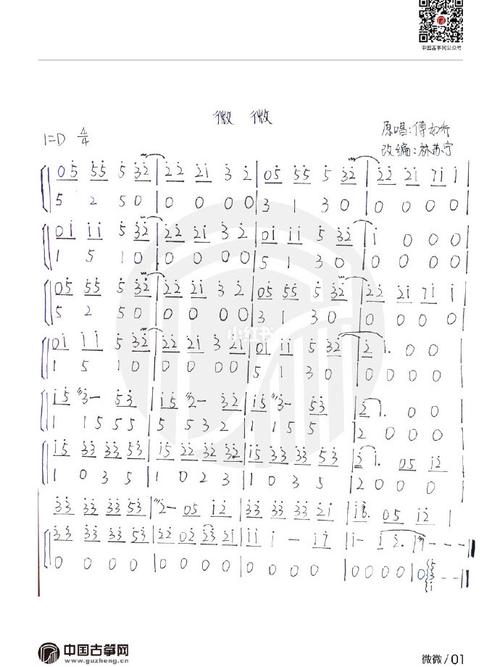 中国古筝网公众号
微 微
1=D 4/4
原唱:傅如乔
改编:林苏宁
05 55 5 32 | 22 21 3 2 | 05 55 5 32 | 22 21 71 1
5 2 5 0 | 0 0 0 0 | 3 1 3 0 | 0 0 0 0
01 11 5 32 | 22 21 3 2 | 01 11 5 32 | 1 0 0 0
1 5 1 0 | 0 0 0 0 | 5 1 3 0 | 0 0 0 0
05 55 5 32 | 22 21 3 2 | 05 55 5 32 | 22 21 71 1
5 2 5 0 | 0 0 0 0 | 3 1 3 0 | 0 0 0 0
小红书
01 11 5 32 | 22 21 3 2 | 01 11 5 32 | 2 1. 0 0
1 5 1 0 | 0 0 0 0 | 5 1 3 0 | 0 0 0 0
15 3- 53 | 15 2- 32 | 15 3- 53 | 2 1.
1 1 5 5 5 | 5 5 3 2 | 1 1 5 5 | 2 0 0 0
15 33 33 53 | 15 22 32 32 | 15 33 33 53 | 2 1. 05 12
1 0 3 5 | 1 0 3 5 | 1 0 3 5 | 2 0 0 0
33 33 33 53 | 2- 05 12 | 33 33 33 53
33 33 33 53 | 22 02 23 21 | 1 1 1 - 1 1
0 0 0 0 | 0 0 0 0 | 0 0 0 0
中国古筝网
www.guzheng.cn
微微/01